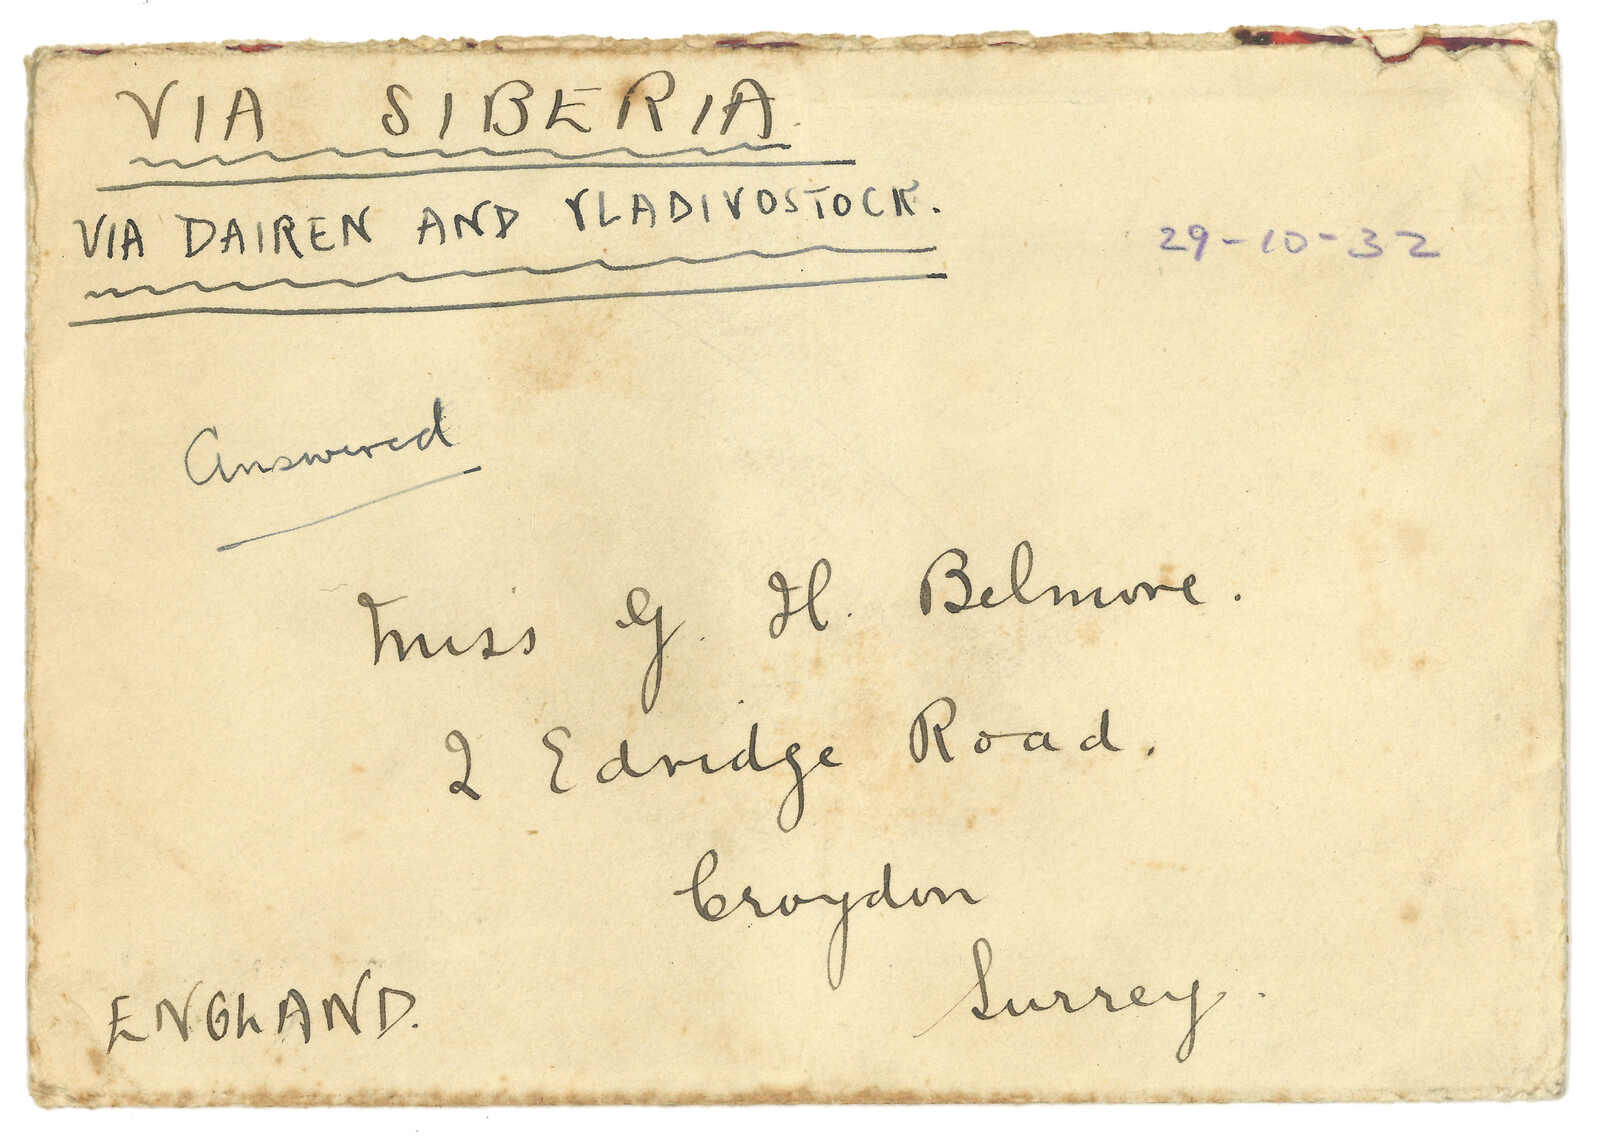 VIA SIBERIA.
VIA DAIREN AND VLADIVOSTOCK.
29-10-32
Answered
Miss G. H. Belmore.
2 Edridge Road.
Croydon
Surrey.
ENGLAND.